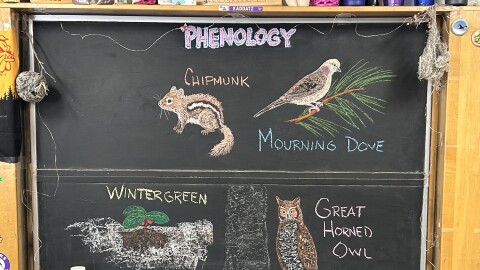 PHENOLOGY
CHIPMUNK
MOURNING DOVE
WINTERGREEN
GREAT
HORNED
OWL